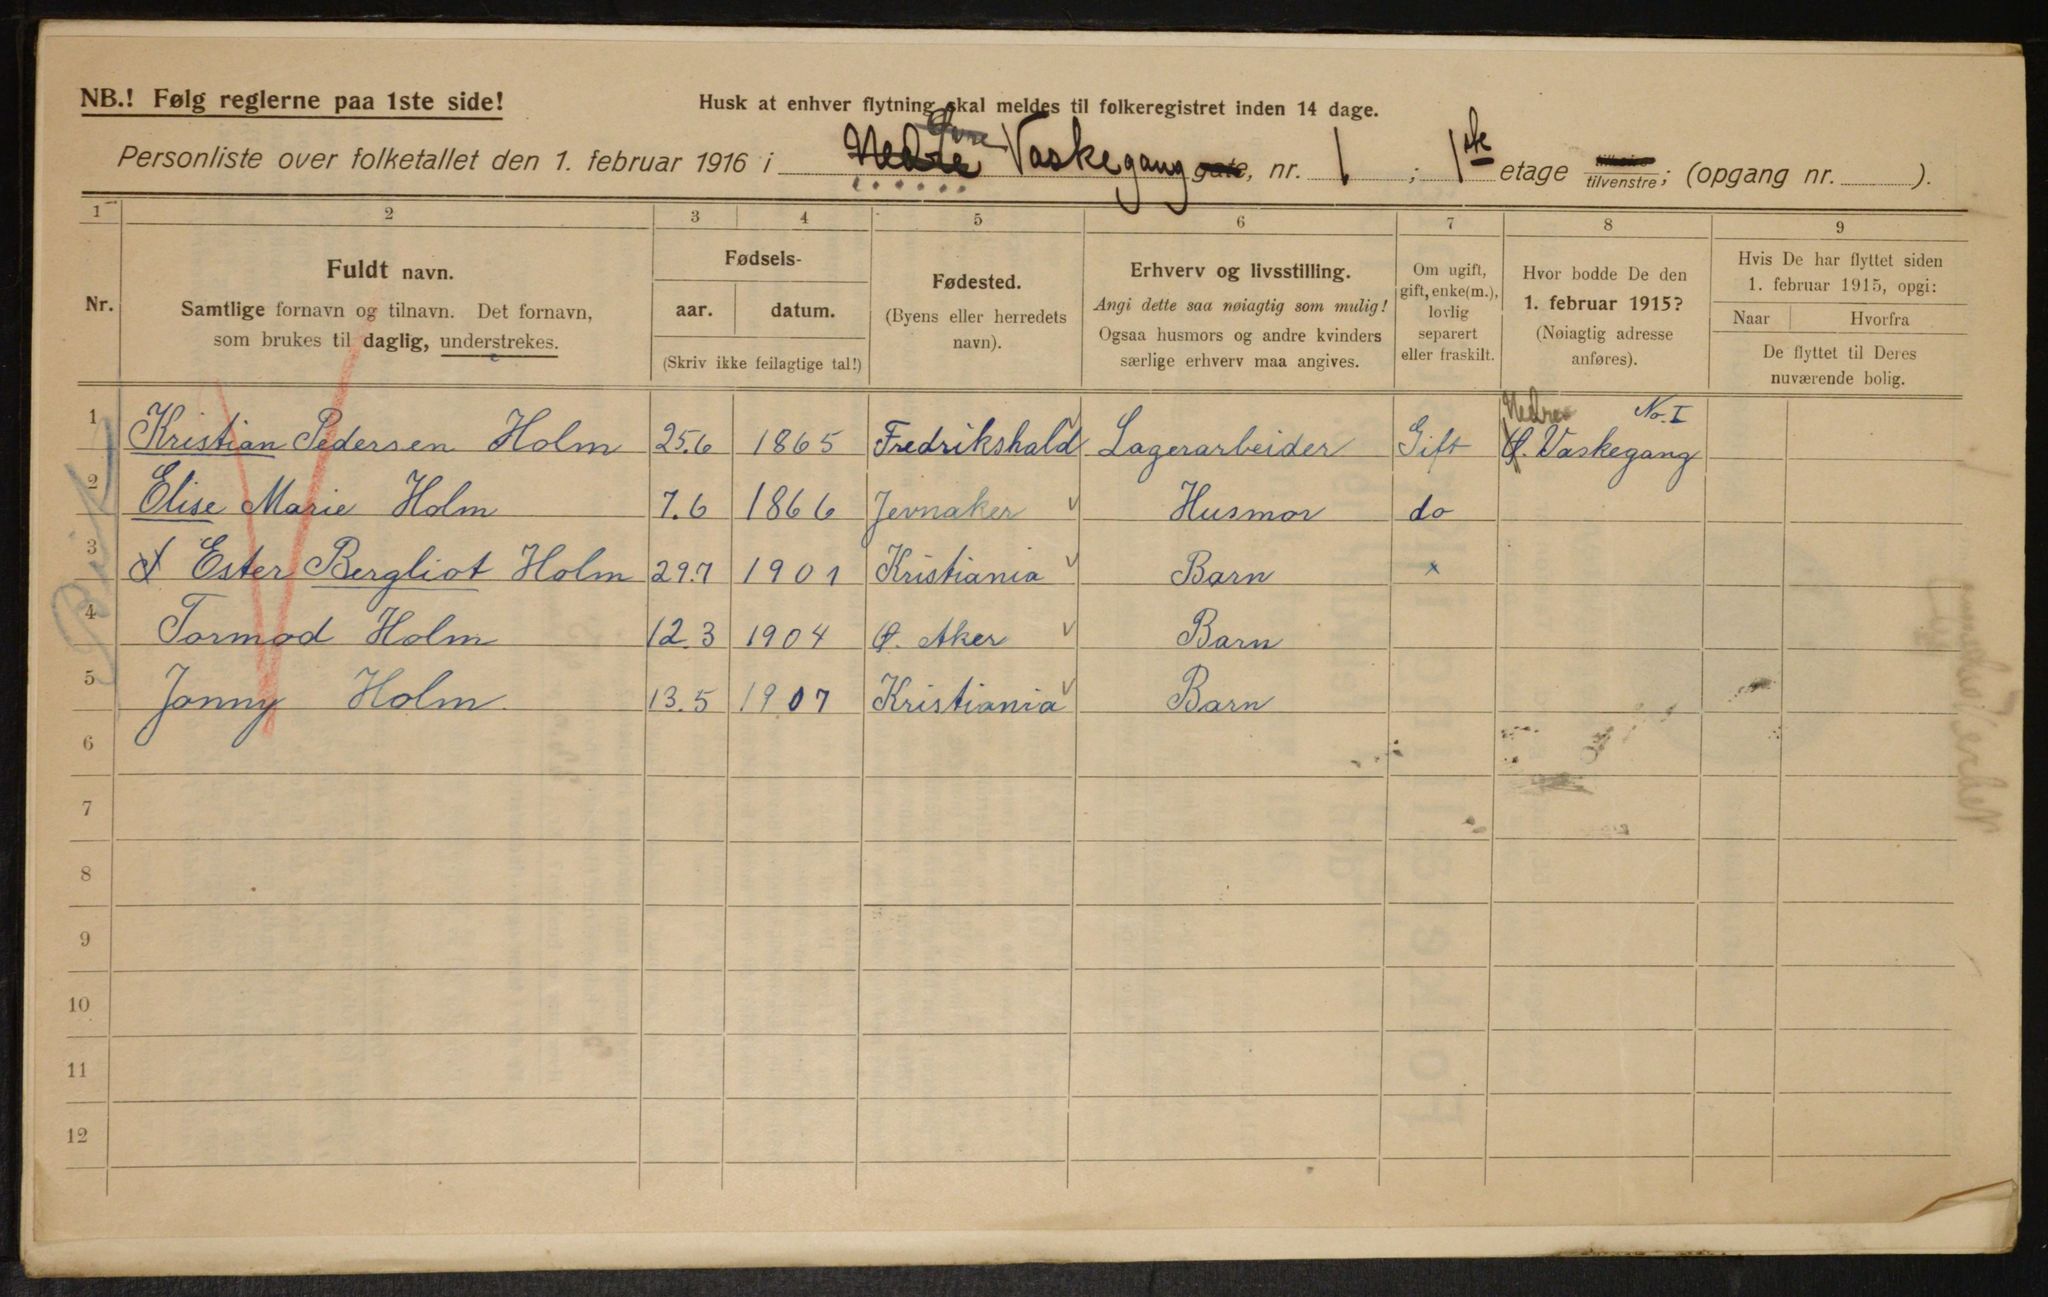 NB.! Følg reglerne paa 1ste side!
Husk at enhver flytning skal meldes til folkeregistret inden 14 dage.
Personliste over folketallet den 1. februar 1916 i Nedre Vaskegang gate, nr. 1 ; 1ste etage tilhøire tilvenstre; (opgang nr. ).
1 2 3 4 5 6 7 8 9
Nr.
Fuldt navn.
Samtlige fornavn og tilnavn. Det fornavn,
som brukes til daglig, understrekes.
Fødsels-
aar. datum.
(Skriv ikke feilagtige tal!)
Fødested.
(Byens eller herredets
navn).
Erhverv og livsstilling.
Angi dette saa nøiagtig som mulig!
Ogsaa husmors og andre kvinders
særlige erhverv maa angives.
Om ugift,
gift, enke(m.),
lovlig
separert
eller fraskilt.
Hvor bodde De den
1. februar 1915?
(Nøiagtig adresse
anføres).
Hvis De har flyttet siden
1. februar 1915, opgi:
Naar Hvorfra
De flyttet til Deres
nuværende bolig.
Nedre No. I
1 Kristian Pedersen Holm 25.6 1865 Fredrikshald Lagerarbeider Gift Ø. Vaskegang
2 Elise Marie Holm 7.6 1866 Jevnaker Husmor do
3 Ester Bergliot Holm 29.7 1901 Kristiania Barn x
4 Tormod Holm 12.3 1904 Ø. Aker Barn
5 Jonny Holm. 13.5 1907 Kristiania Barn
6
7
8
9
10
11
12